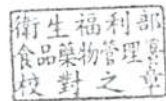 衛生福利部
食品藥物管理
校對之章